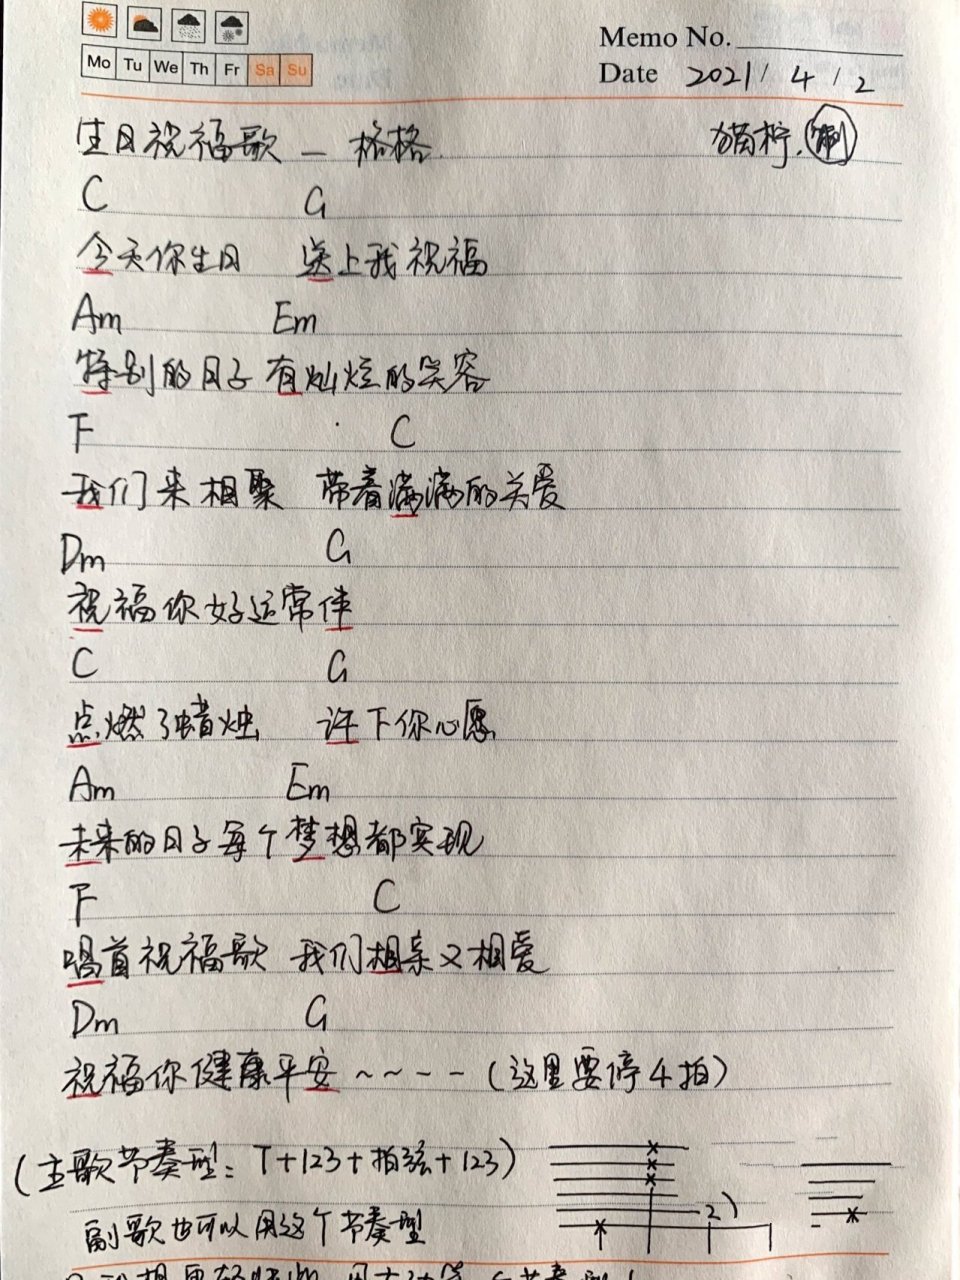 Mo Tu We Th Fr Sa Su
Memo No.
Date 2021/4/2
生日祝福歌 — 格格 猫柠.
C G
今天你生日 送上我祝福
Am Em
特别的日子 有灿烂的笑容
F C
我们来相聚 带着满满的关爱
Dm G
祝福你好运常伴
C G
点燃了蜡烛 许下你心愿
Am Em
未来的日子每个梦想都实现
F C
唱首祝福歌 我们相亲又相爱
Dm G
祝福你健康平安~~--(这里要停4拍)
(主歌节奏型: T+123+拍弦+123)
副歌也可以用这个节奏型